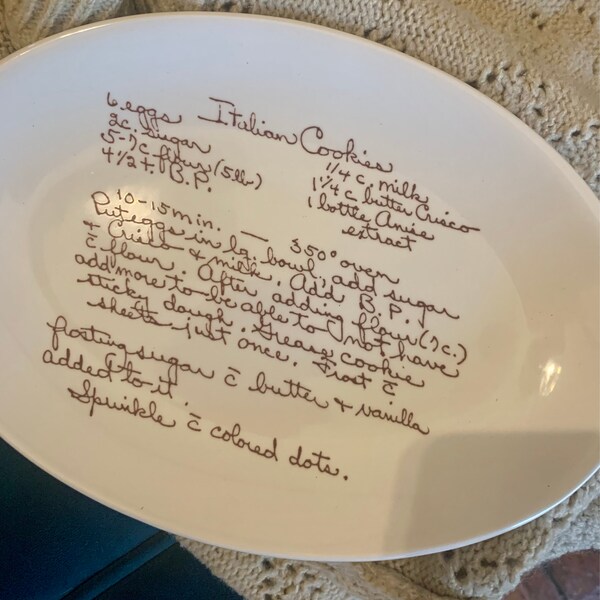 Italian Cookies
6 eggs
2c. sugar
5-7c. flour (5lb)
4 1/2 t. B.P.
1/4 c. milk
1 1/4 c. butter Crisco
1 bottle Anise
extract
10-15 min. — 350° oven
Put eggs in lg. bowl, add sugar
& Crisco & milk. Add B.P.
c̄ flour. After adding flour (7c.)
add more to be able to not have
sticky dough. Grease cookie
sheets just once. Frost c̄
frosting sugar c̄ butter & vanilla
added to it.
Sprinkle c̄ colored dots.